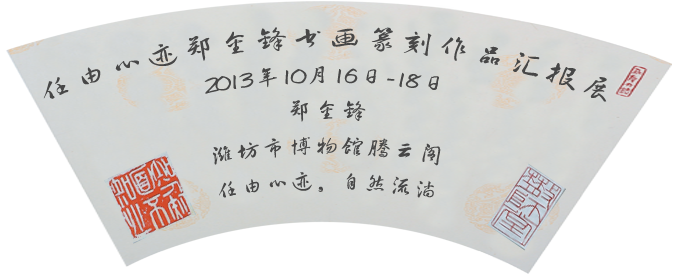 任由心迹郑金锋书画篆刻作品汇报展
2013年10月16日-18日
郑金锋
潍坊市博物馆腾云阁
任由心迹。自然流淌